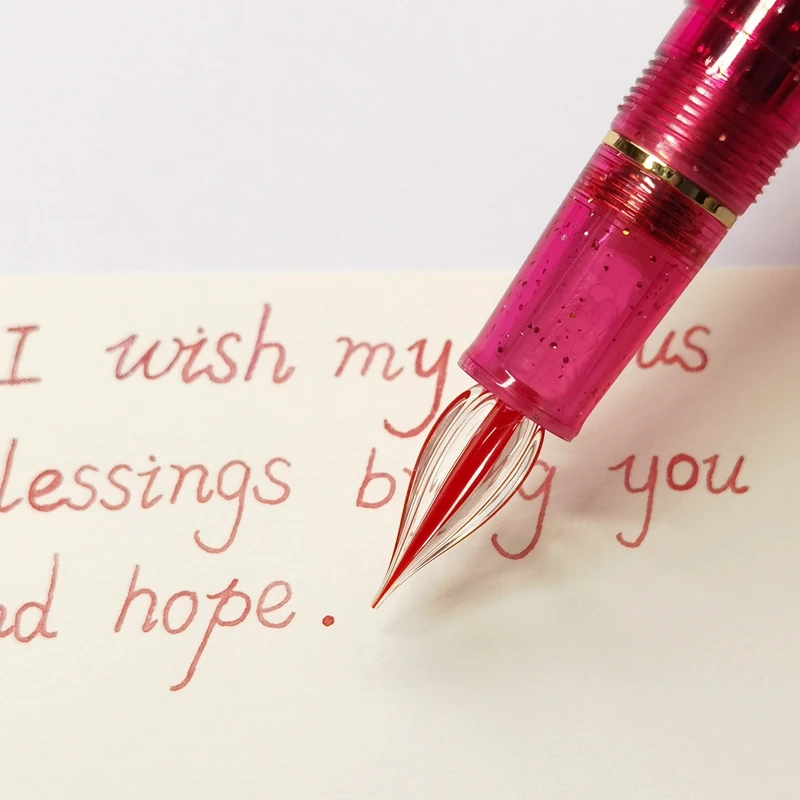 I wish my us
lessings b g you
nd hope.